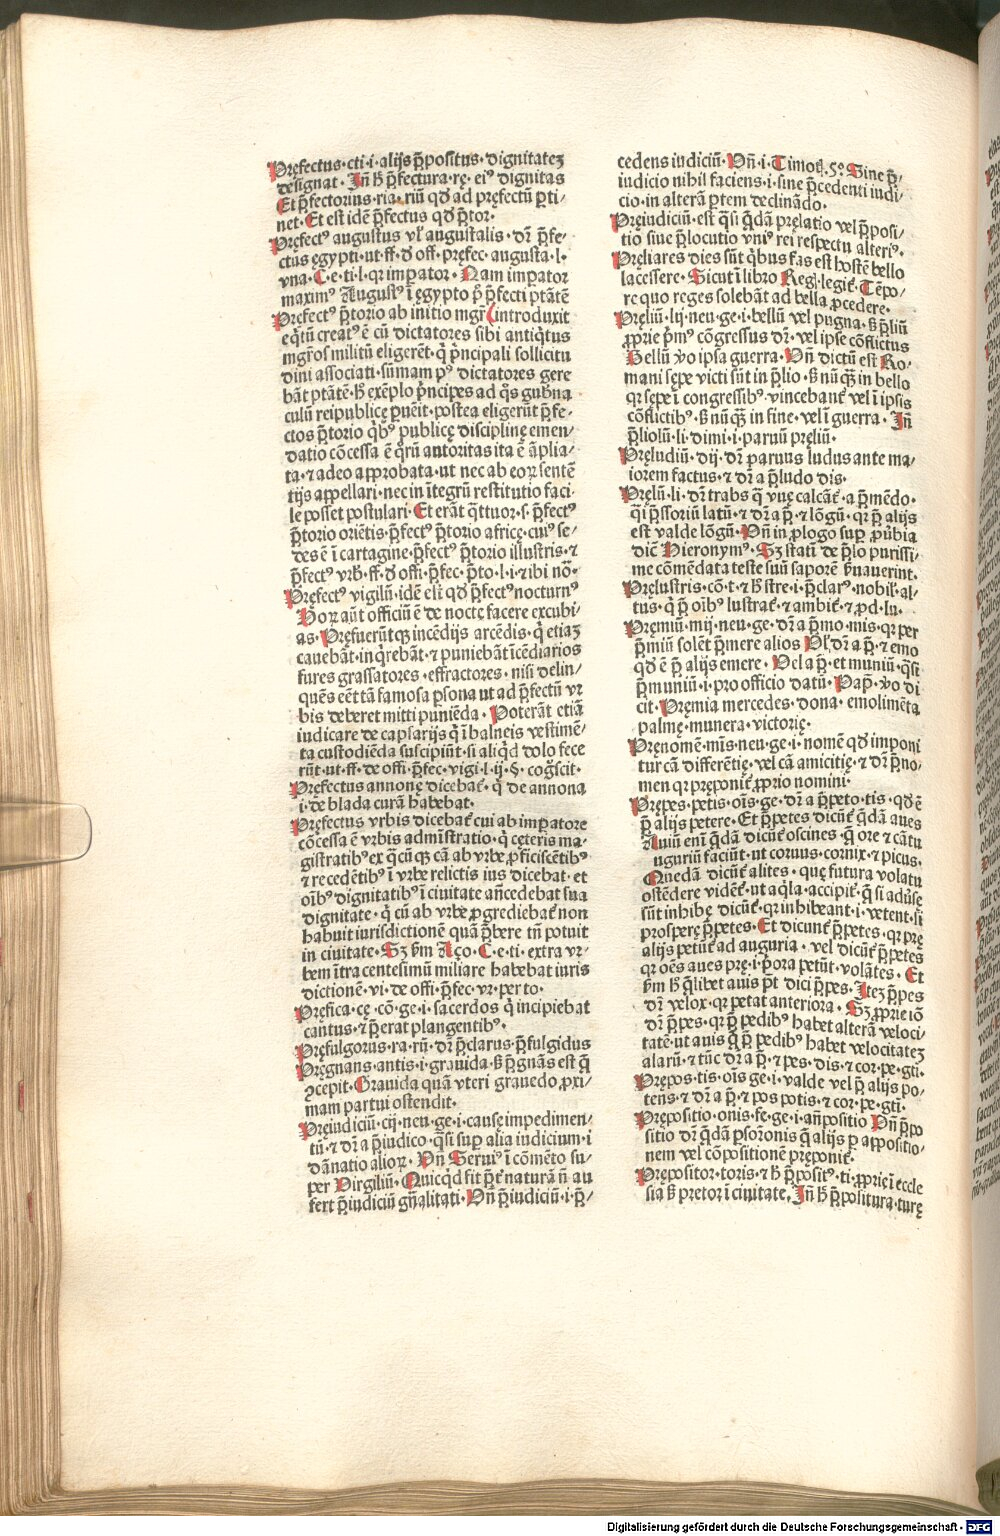 Pręfectus·cti·i·alijs p̄positus·dignitateꝫ
designat·Jn̄ h̄ p̄fectura·rę·ei⁹ dignitas
Et p̄fectorius·ria·riū qd̄ ad pręfectū ꝑti⸗
net·Et est idē p̄fectus qd̄ p̄tor·
Pręfect⁹ augustus vl̓ augustalis·dr̄ p̄fe⸗
ctus ęgypti·ut·ff·d̄ off·pręfec·augusta·l·
vna·C·e·ti·l·qr imꝑator·Nam imꝑator
maxim⁹ August⁹ ī ęgypto p̄ p̄fecti ptātē
Pręfect⁹ p̄torio ab initio mgr̄ (introduxit
eq̇tū creat⁹ ē cū dictatores sibi antiq̇tus
mgr̄os militū eligerēt·q̇ pṅcipali sollicitu
dini associati·sūmam p⁹ dictatores gere
bāt ptātē·h̄ exēplo pṅcipes ad q̊s gub̄na
culū reipublicę ꝑuēit·postea eligerūt p̄fe⸗
ctos p̄torio q̇b⁹ publicę disciplinę emen⸗
datio cōcessa ē q̊rū autoritas ita ē āplia⸗
ta·⁊ adeo aꝓrobata·ut nec ab eoꝝ sentē
tijs appellari·nec in ītegrū restitutio faci⸗
le posset postulari·Et erāt q̇ttuor·s·p̄fect⁹
p̄torio oriētis·p̄fect⁹ p̄torio africę·cui⁹ se⸗
des ē ī cartagine·p̄fect⁹ p̄torio illustris·⁊
p̄fect⁹ vrb̄·ff·d̄ offi·p̄fec·p̄to·l·i·⁊ ibi nō·
Pręfect⁹ vigilū·idē est̄ qd̄ p̄fect⁹ nocturn⁹
Hoꝝ aūt officiū ē de nocte facere excubi
as·Pręfuerūtqꝫ incēdijs arcēdis·q̇ etiaꝫ
cauebāt·inq̇rebāt·⁊ puniebāt īcēdiarios
fures grassatores·effractores·nisi delin⸗
quēs cēt tā famosa ꝑsona ut ad p̄fectū vr
bis deberet mitti puniēda·Poterāt etiā
iudicare de capsarijs q̇ ī balneis vestimē⸗
ta custodiēda suscipiūt·si aliq̇d dolo fece
rūt·ut·ff·de offi·p̄fec·vigi·l·ij·§·cog̅scit·
Pręfectus annonę dicebat̄·q̇ de annona
i·de blada curā habebat·
Pręfectus vrbis dicebat̄ cui ab imꝑatore
cōcessa ē vrbis admīstratio·q̇ cęteris ma⸗
gistratib⁹ ex q̄cūqꝫ cā ab vrbe ꝓficiscētib⁹
⁊ recedētib⁹ ī vrbe relictis ius dicebat·et
oīb⁹ dignitatib⁹ ī ciuitate an̄cedebat sua
dignitate·q̇ cū ab vrbe ꝓgrediebat̄ non
habuit iurisdictionē quā p̄bere tn̄ potuit
in ciuitate·Sꝫ ẜm Aço·C·e·ti·extra vr⸗
bem ītra centesimū miliare habebat iuris
dictionē·vi·de offi·p̄fec·vr·per to·
Pręfica·cę·cō·ge·i·sacerdos q̇ incipiebat
cantus·⁊ p̄erat plangentib⁹·
Pręfulgorus·ra·rū·dr̄ p̄clarus·p̄fulgidus
Pręgnans·antis·i·grauida·ẞ p̄gnās est q̄
ꝯcepit·Grauida quā vteri grauedo ꝓxi⸗
mam partui ostendit·
Pręiudiciū·cij·neu·ge·i·causę impedimen⸗
tū·⁊ dr̄ a p̄iudico·q̇si suꝑ alia iudicium·i
dānatio alioꝝ·Vn̄ Serui⁹ ī cōmēto su⸗
per Virgiliū·Quicq̇d fit p̄ter naturā n̄ au
fert p̄iudiciū gn̄alitati·Vn̄ p̄iudiciū·i·p̄⸗
cedens iudiciū·Vn̄·i·Timoth·5°·Sine p̄⸗
iudicio nihil faciens·i·sine p̄cedenti iudi⸗
cio·in alterā ꝑtem declinādo·
Pręiudiciū·est q̄si q̄dā pręlatio vel p̄posi⸗
tio siue p̄locutio vni⁹ rei respectu alteri⁹·
Pręliares dies sūt q̇bus fas est hostē bello
lacessere·Sicut ī libro Reg·legit̄·Tēpo⸗
re quo reges solebāt ad bella ꝓcedere·
Pręliū·lij·neu·ge·i·bellū vel pugna·ẞ p̄liū
ꝓprie pm⁹ cōgressus dr̄·vel ipse cōflictus
Bellū v̊o ipsa guerra·Vn̄ dictū est Ro⸗
mani sępe victi sūt in p̄lio·ẞ nūqꝫ in bello
qr sępe ī congressib⁹·vincebant̄ vel ī ipsis
cōflictib⁹·ẞ nūqꝫ in fine·vel ī guerra·Jn̄
p̄liolū·li·dimi·i·paruū pręliū·
Pręludiū·dij·dr̄ paruus ludus ante ma⸗
iorem factus·⁊ dr̄ a p̄ludo dis·
Pręlū·li·dr̄ trabs q̄ vuę calcāt̄·a p̄mēdo·
q̇si p̄ssoriū latū·⁊ dr̄ a p̄·⁊ lōgū·qr p̄ alijs
est valde lōgū·Vn̄ in ꝓlogo suꝑ ꝓu̇bia
dic̄ Hieronym⁹·Sꝫ statī de p̄lo purissi⸗
me cōmēdata teste suū saporē ẜuauerint·
Pręlustris·cō·t·⁊ h̄ stre·i·p̄clar⁹·nobil̓·al⸗
tus·q̇ p̄ oīb⁹ lustrat̄·⁊ ambit̄·⁊ ꝓd·lu·
Pręmiū·mij·neu·ge·dr̄ a p̄mo·mis·qr per
p̄miū solēt p̄mere alios Vl̓ dr̄ a p̄·⁊ emo
qd̄ ē p̄ alijs emere·Vel a p̄·et muniū·q̇si
p̄muniū·i·pro officio datū·Pap̄·v̊o di
cit·Pręmia mercedes·dona·emolimēta
palmę·munera·victorię·
Pręnomē·mīs·neu·ge·i·nomē qd̄ imponi
tur cā differētię·vel cā amicitię·⁊ dr̄ p̄no⸗
men qr pręponit̄ ꝓprio nomini·
Prępes·petis·oīs·ge·dr̄ a p̄peto·tis·qd̄ ē
p̄ alijs petere·Et p̄petes dicūt̄ q̄dā aues
Auiū enī q̄dā dicūt̄ oscines·q̄ ore ⁊ cātu
auguriū faciūt·ut coruus·cornix·⁊ picus·
Quędā dicūt̄ alites·quę futura volatu
ostēdere vidēt̄·ut aq̇la·accipit̄·q̄ si aduse
sūt inhibę dicūt̄·qr inhibeant·i·vetent·si
prosperę p̄petes·Et dicunt̄ p̄petes·qr prę
alijs petūt̄ ad auguria·vel dicūt̄ p̄petes
qr oēs aues prę·i·pṙora petūt·volātes·Et
ẜm h̄ q̄libet auis p̄t dici p̄pes·Jteꝫ p̄pes
dr̄ velox·qr petat anteriora·Sꝫ ꝓprie iō
dr̄ p̄pes·qr p̄ pedib⁹ habet alterā veloci⸗
tatē·ut auis q̄ p̄ pedib⁹ habet velocitateꝫ
alarū·⁊ tūc dr̄ a p̄·⁊ pes·dis·⁊ cor·pe·gti·
Prępos·tis·oīs ge·i·valde vel p̄ alijs po⸗
tens·⁊ dr̄ a p̄·⁊ pos potis·⁊ cor·pe·gti·
Prępositio·onis·fe·ge·i·an̄positio Vn̄ p̄po
sitio dr̄ q̄dā ꝑs orōnis q̄ alijs ꝑ appositio⸗
nem vel cōpositionē pręponit̄·
Prępositor·toris·⁊ h̄ p̄posit⁹·ti·ꝓprie ī eccle
sia ẞ pretor ī ciuitate·Jn̄ h̄ p̄positura·turę
Digitalisierung gefördert durch die Deutsche Forschungsgemeinschaft - DFG